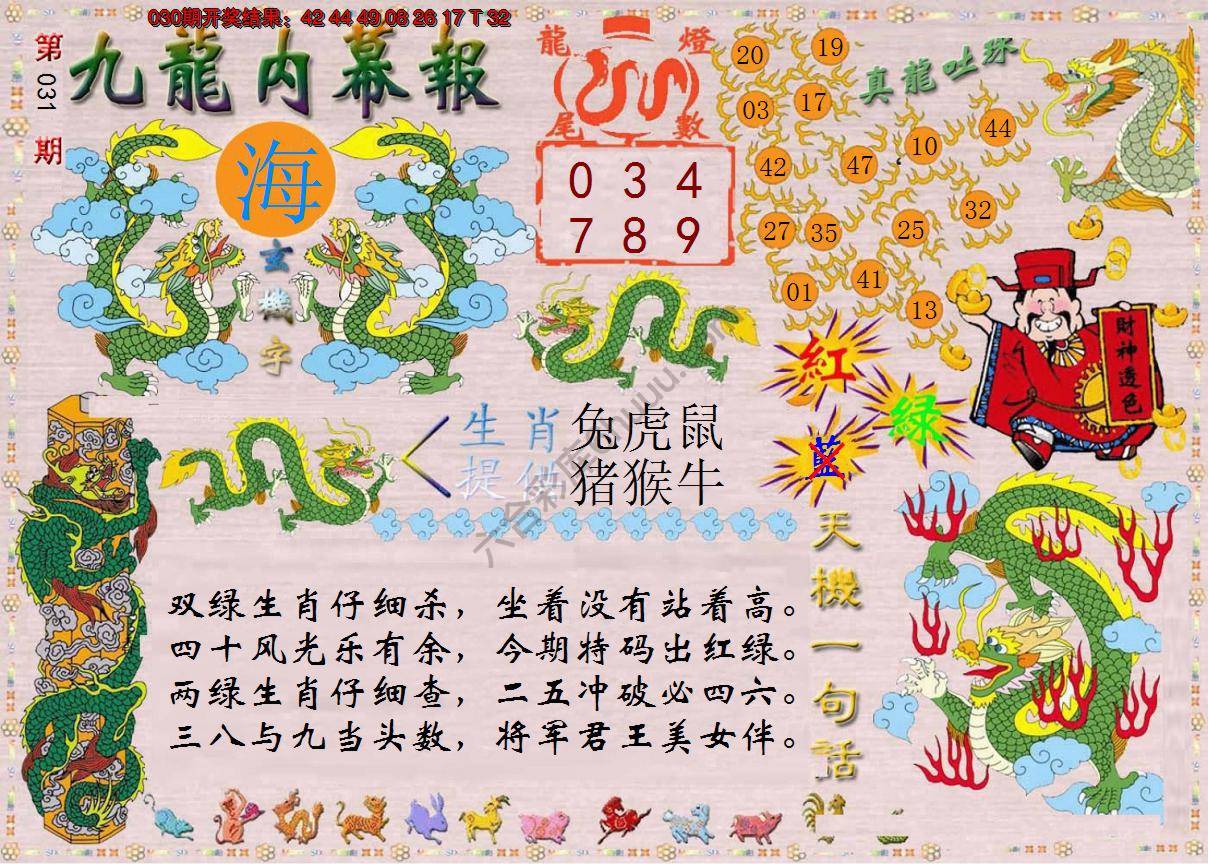 030期开奖结果：42 44 49 08 26 17 T 32
第031期
九龍内幕報
海
玄機字
龍燈
尾數
0 3 4
7 8 9
真龍吐珠
20 19
03 17
42 47 10 44
27 35 25 32
01 41 13
財神透色
紅
綠
藍
生肖
提供
兔虎鼠
猪猴牛
天機一句話
双绿生肖仔细杀，坐着没有站着高。
四十风光乐有余，今期特码出红绿。
两绿生肖仔细查，二五冲破必四六。
三八与九当头数，将军君王美女伴。